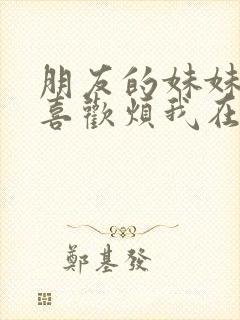 朋友的妹妹
喜歡煩我在
鄭基發